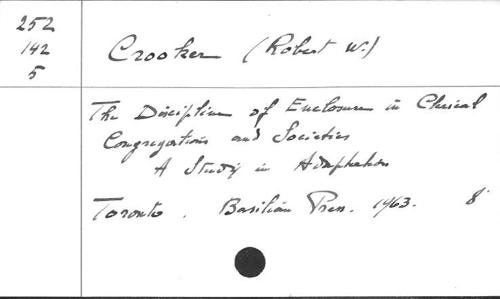 252
142
5
Crooker (Robert W.)
The Discipline of Enclosure in Clerical
Congregations and Societies
A Study in Adaptation
Toronto. Basilian Press. 1963. 8